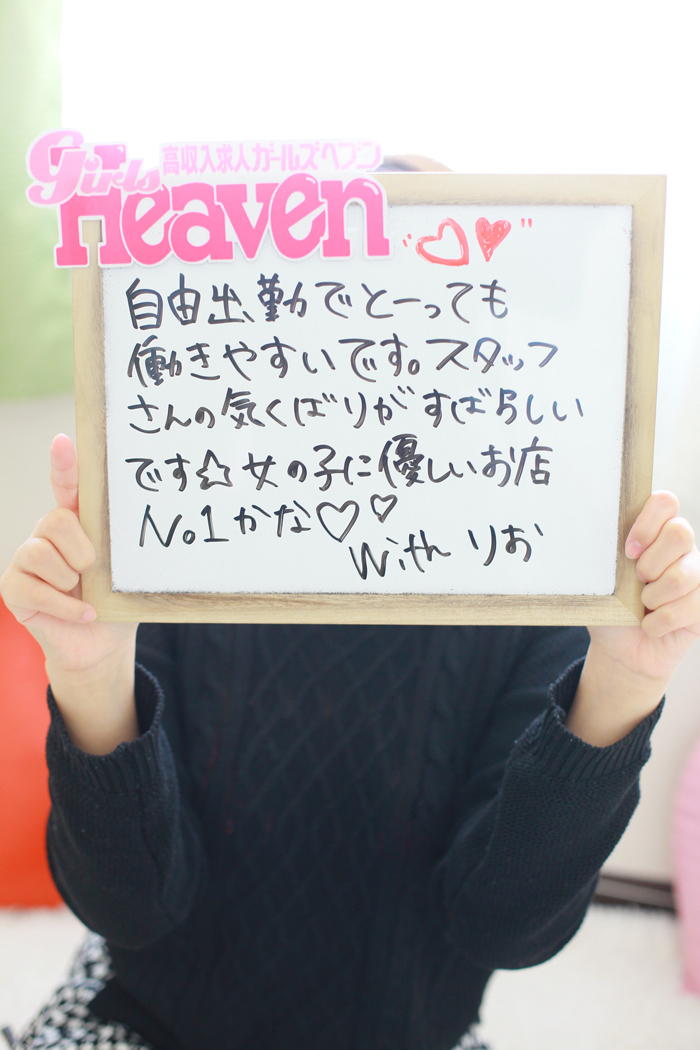 Girls
高収入求人ガールズヘブン
Heaven
自由出勤でとーっても
働きやすいです。スタッフ
さんの気くばりがすばらしい
です☆女の子に優しいお店
No.1かな♡♡
With りお